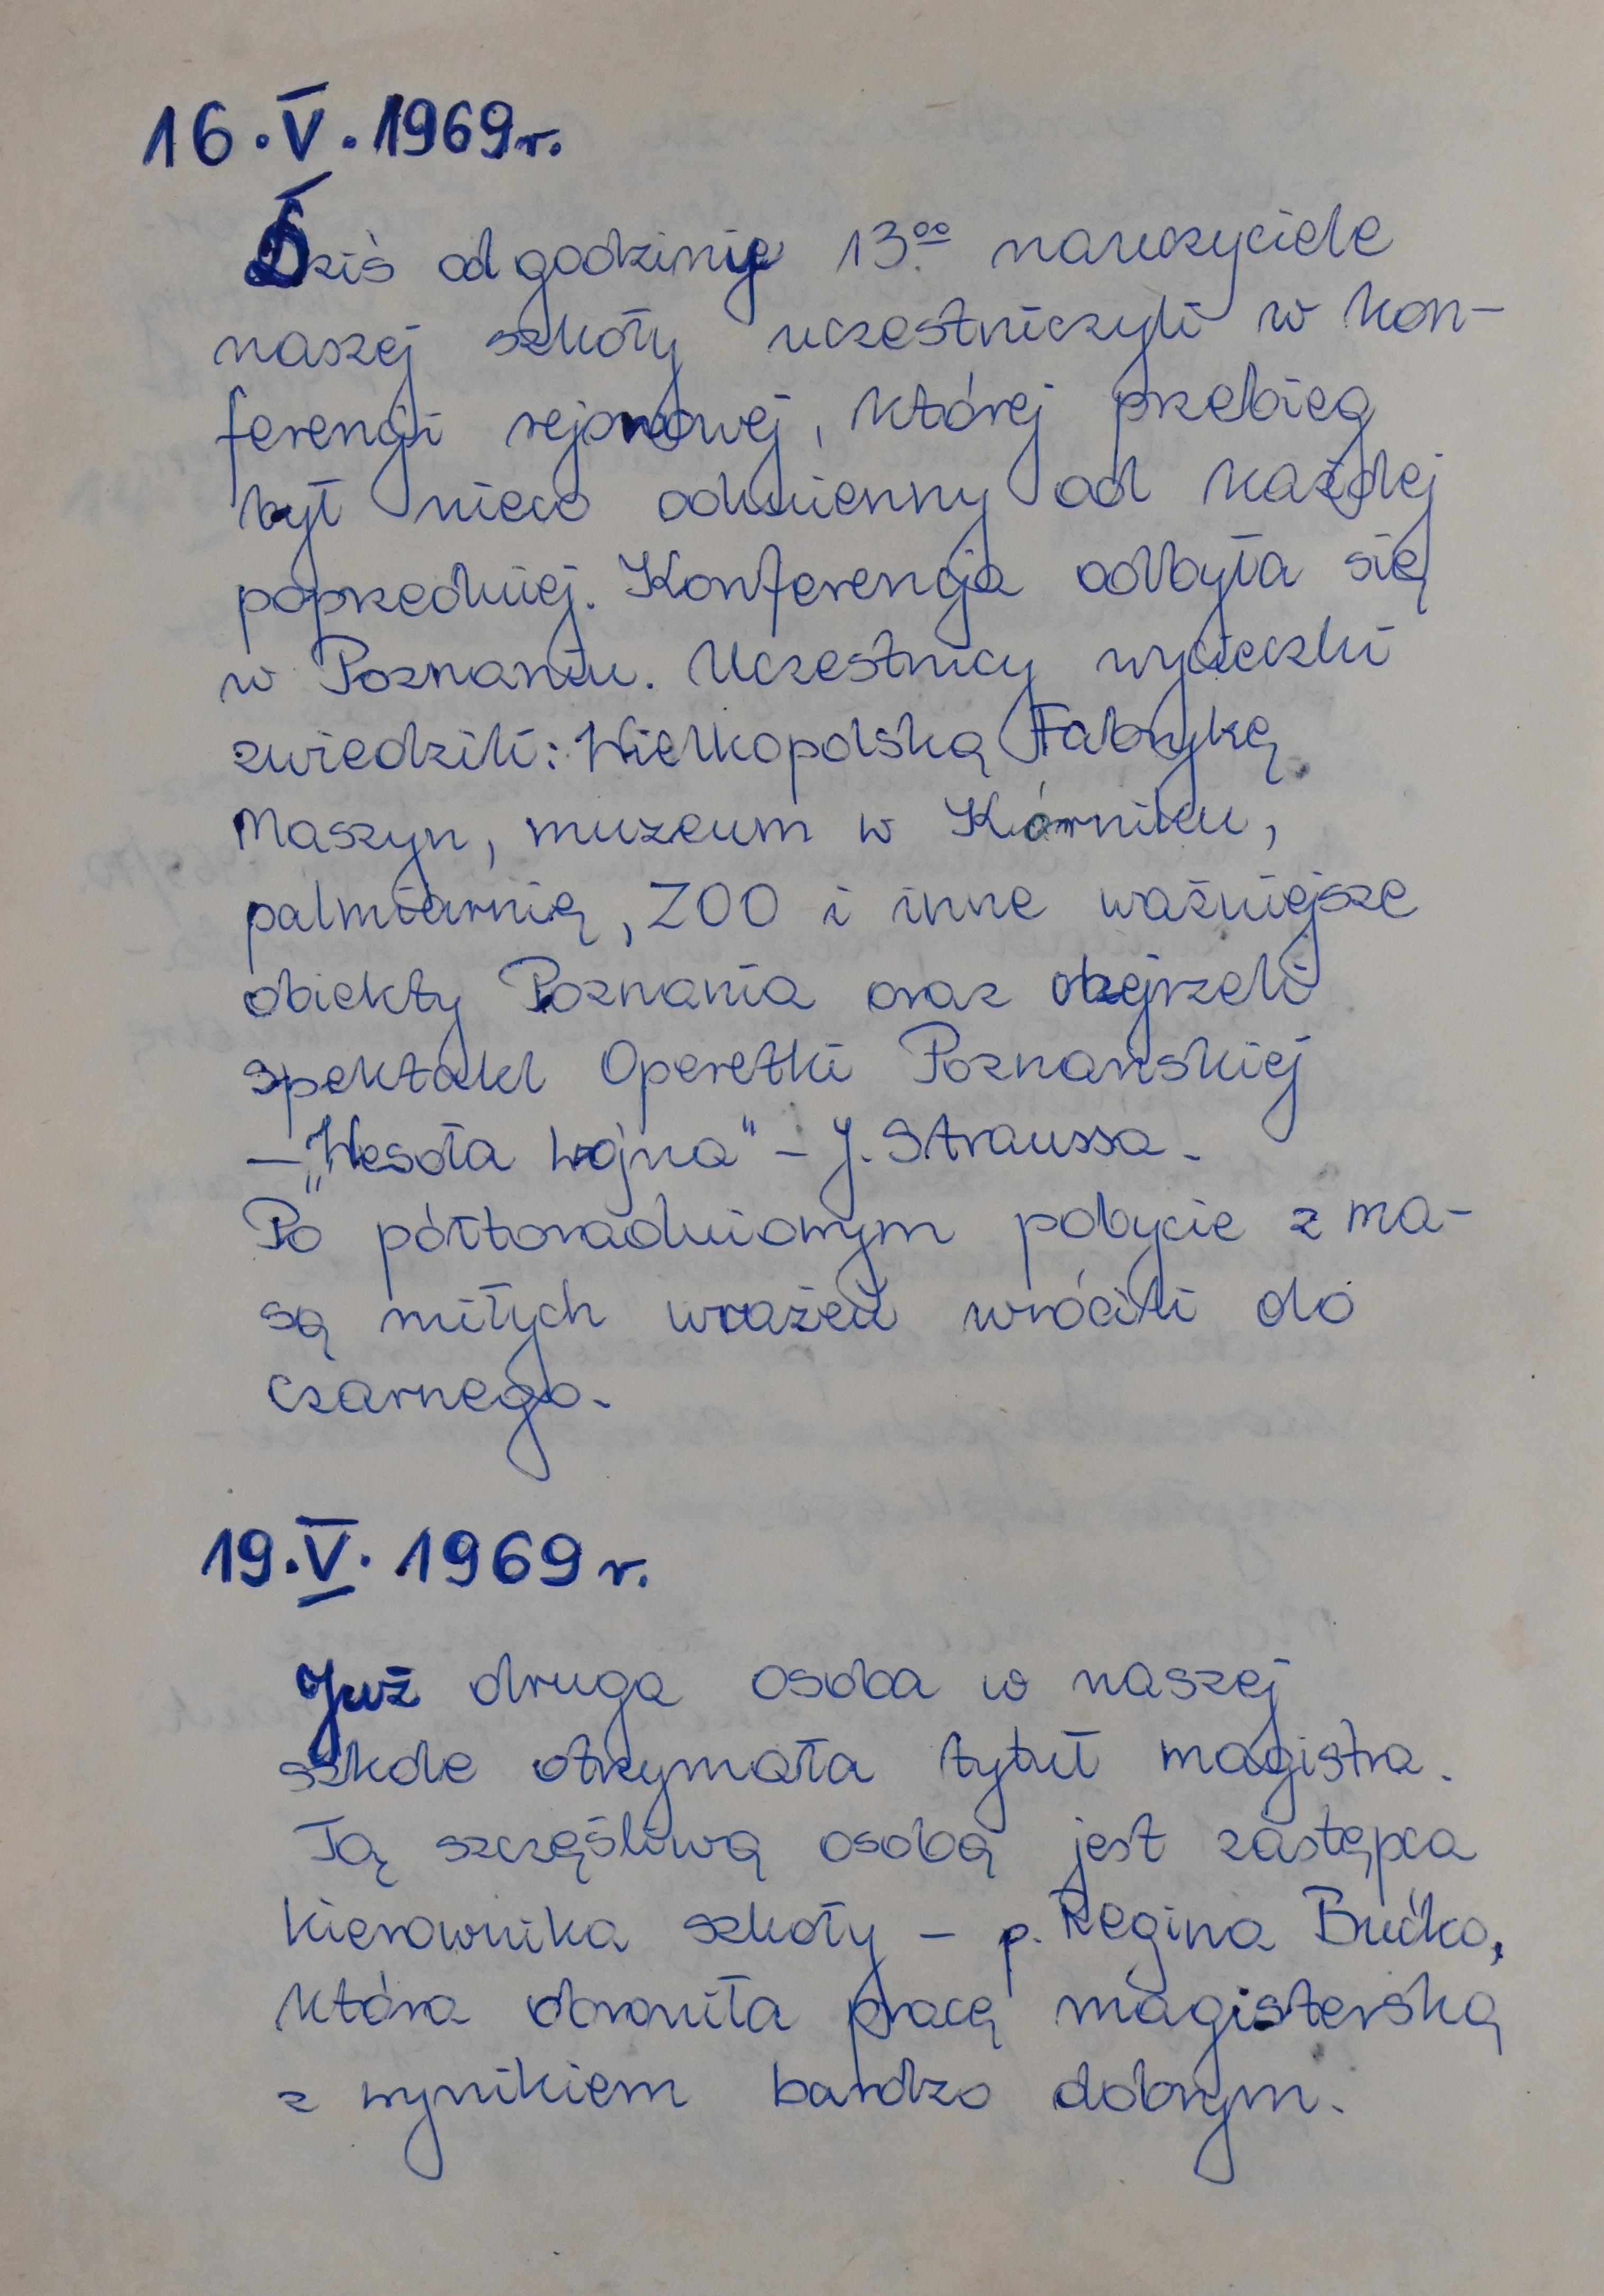 16.V.1969r.
Dziś od godziny 13.00 nauczyciele
naszej szkoły uczestniczyli w kon-
ferencji rejonowej, której przebieg
był nieco odmienny od każdej
poprzedniej. Konferencja odbyła się
w Poznaniu. Uczestnicy wycieczki
zwiedzili: Wielkopolską Fabrykę
Maszyn, muzeum w Kórniku,
palmiarnię, ZOO i inne ważniejsze
obiekty Poznania oraz obejrzeli
spektakl Operetki Poznańskiej
– „Wesoła wojna" – J. Straussa.
Po półtoradniowym pobycie z ma-
są miłych wrażeń wrócili do
Czarnego.
19.V.1969 r.
Już druga osoba w naszej
szkole otrzymała tytuł magistra.
Tą szczęśliwą osobą jest zastępca
kierownika szkoły – p. Regina Bućko,
która obroniła pracę magisterską
z wynikiem bardzo dobrym.